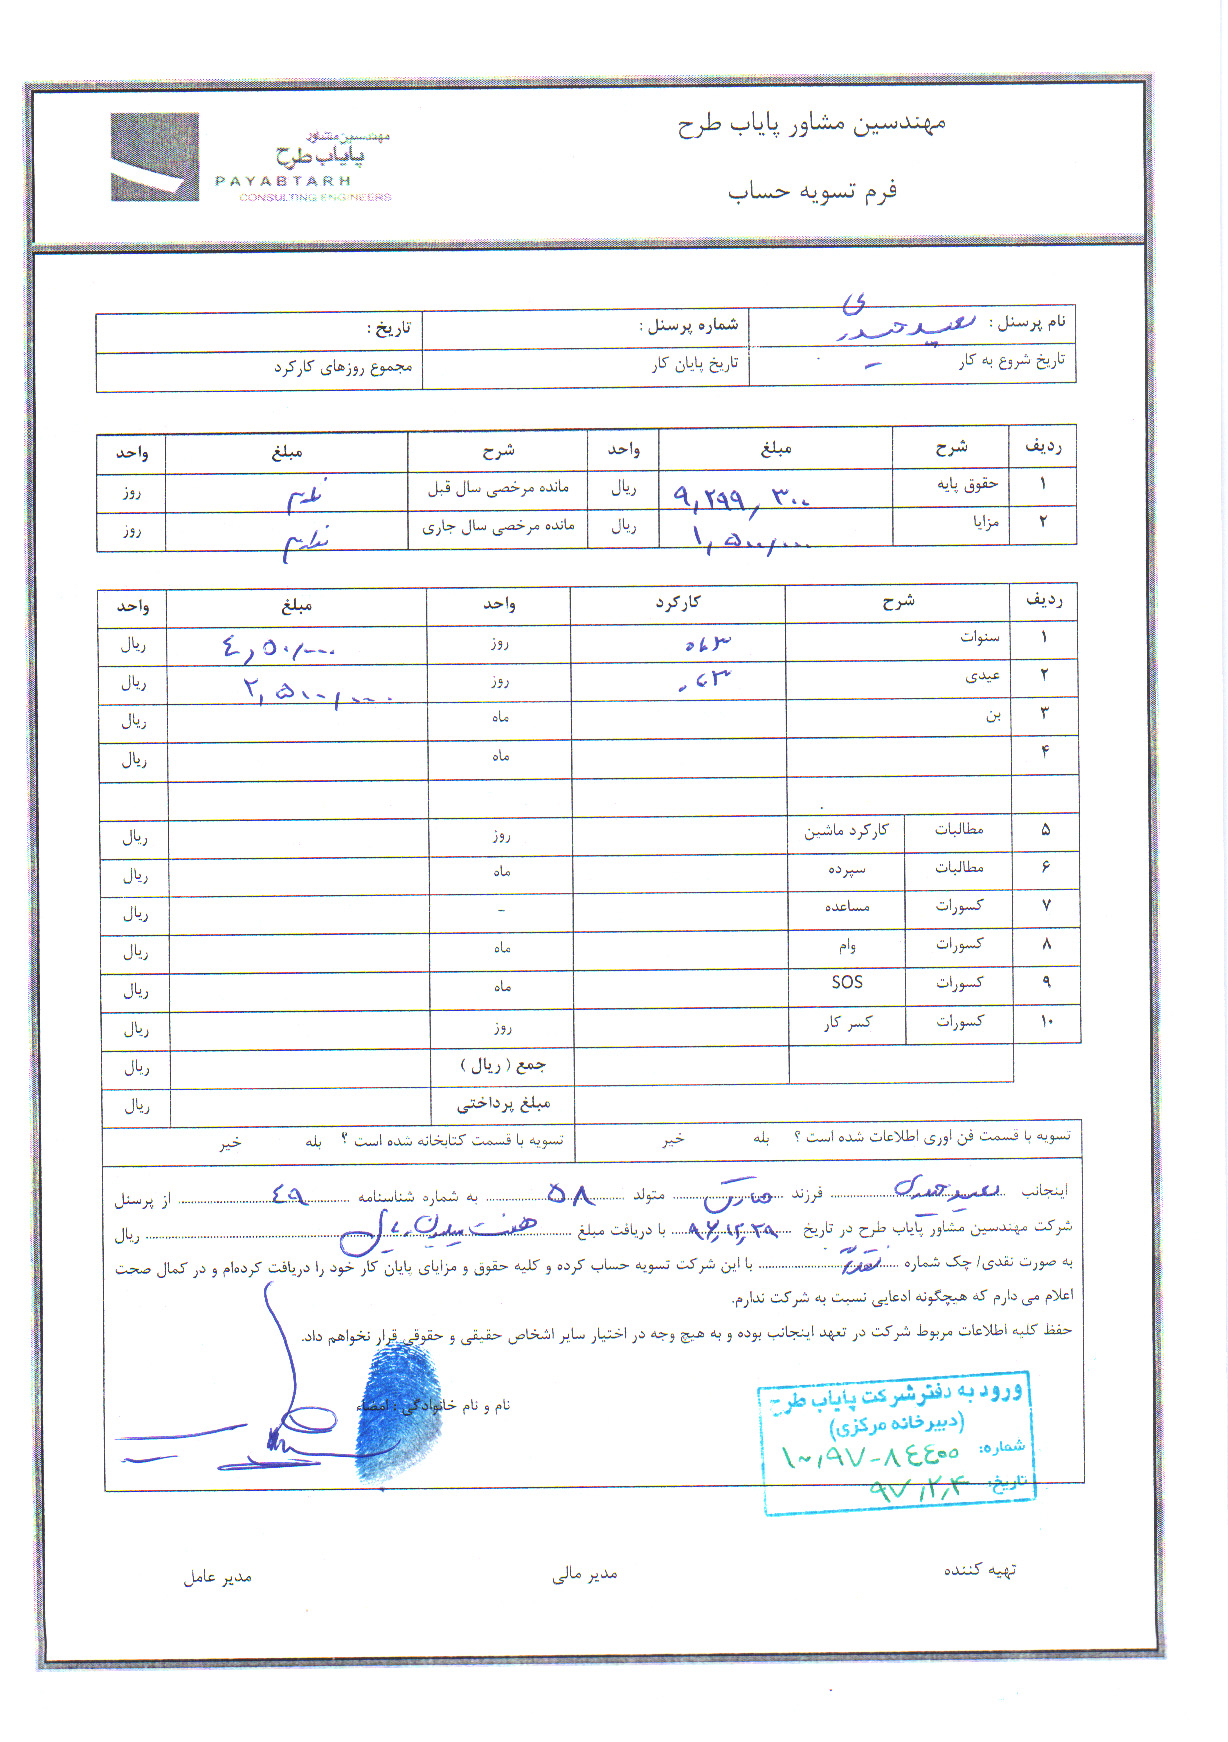 مهندسین مشاور پایاب طرح
فرم تسویه حساب
مهندسین مشاور
پایاب طرح
PAYABTARH
CONSULTING ENGINEERS
نام پرسنل : سعید حیدری شماره پرسنل : تاریخ :
تاریخ شروع به کار - تاریخ پایان کار مجموع روزهای کارکرد
ردیف شرح مبلغ واحد شرح مبلغ واحد
۱ حقوق پایه ۹,۲۹۹,۳۰۰ ریال مانده مرخصی سال قبل ندارم روز
۲ مزایا ۱,۵۰۰,۰۰۰ ریال مانده مرخصی سال جاری ندارم روز
ردیف شرح کارکرد واحد مبلغ واحد
۱ سنوات روز ۴,۵۰۰,۰۰۰ ریال
۲ عیدی روز ۲,۵۰۰,۰۰۰ ریال
۳ بن ماه ریال
۴ ماه ریال
۵ مطالبات کارکرد ماشین روز ریال
۶ مطالبات سپرده ماه ریال
۷ کسورات مساعده - ریال
۸ کسورات وام ماه ریال
۹ کسورات SOS ماه ریال
۱۰ کسورات کسر کار روز ریال
جمع ( ریال ) ریال
مبلغ پرداختی ریال
تسویه با قسمت فن اوری اطلاعات شده است ؟ بله خیر تسویه با قسمت کتابخانه شده است ؟ بله خیر
اینجانب سعید حیدری فرزند صادق متولد ۵۸ به شماره شناسنامه ۴۹ از پرسنل
شرکت مهندسین مشاور پایاب طرح در تاریخ ۹۶,۱۲,۲۹ با دریافت مبلغ هفت میلیون ریال ریال
به صورت نقدی/ چک شماره نقداً با این شرکت تسویه حساب کرده و کلیه حقوق و مزایای پایان کار خود را دریافت کرده‌ام و در کمال صحت
اعلام می دارم که هیچگونه ادعایی نسبت به شرکت ندارم.
حفظ کلیه اطلاعات مربوط شرکت در تعهد اینجانب بوده و به هیچ وجه در اختیار سایر اشخاص حقیقی و حقوقی قرار نخواهم داد.
نام و نام خانوادگی : امضاء
ورود به دفتر شرکت پایاب طرح
(دبیرخانه مرکزی)
شماره: ۱۰,۹۷-۸۴۴۰۰
تاریخ: ۹۷,۲,۳
تهیه کننده مدیر مالی مدیر عامل